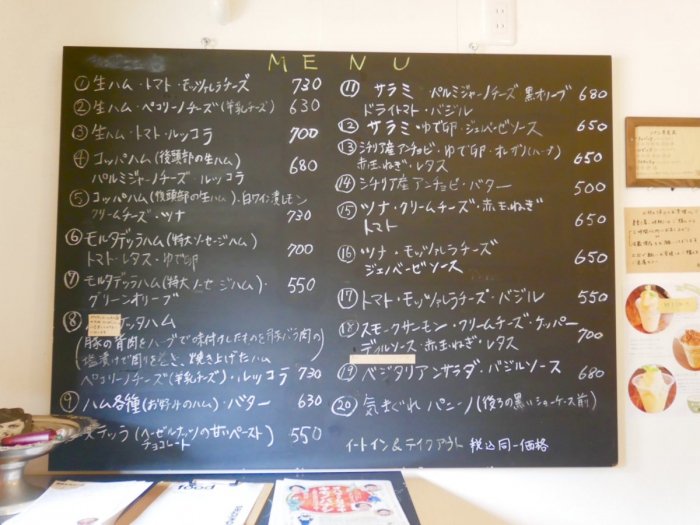 MENU
① 生ハム・トマト・モッツァレラチーズ 730
② 生ハム・ペコリーノチーズ(羊乳チーズ) 630
③ 生ハム・トマト・ルッコラ 700
④ コッパハム(後頭部の生ハム)
パルミジャーノチーズ・ルッコラ 680
⑤ コッパハム(後頭部の生ハム)・白ワイン漬レモン
クリームチーズ・ツナ 730
⑥ モルタデッラハム(特大ソーセージハム)
トマト・レタス・ゆで卵 700
⑦ モルタデッラハム(特大ソーセージハム)・
グリーンオリーブ 550
⑧ ッタハム
(豚の背肉をハーブで味付けしたものを豚バラ肉の
塩漬けで周りを巻き、焼き上げたハム
ペコリーノチーズ(羊乳チーズ)・ルッコラ 730
⑨ ハム各種(お好みのハム)・バター 630
ヌテッラ(ヘーゼルナッツの甘いペースト)
チョコレート 550
⑪ サラミ・パルミジャーノチーズ 黒オリーブ
ドライトマト・バジル 680
⑫ サラミ・ゆで卵・ジェノベーゼソース 650
⑬ シチリア産アンチョビ・ゆで卵・オレガノ(ハーブ)
赤玉ねぎ・レタス 650
⑭ シチリア産アンチョビ・バター 500
⑮ ツナ・クリームチーズ・赤玉ねぎ
トマト 650
⑯ ツナ・モッツァレラチーズ
ジェノベーゼソース 650
⑰ トマト・モッツァレラチーズ・バジル 550
⑱ スモークサーモン・クリームチーズ・ケッパー
ディルソース・赤玉ねぎ・レタス 700
⑲ ベジタリアンサラダ・バジルソース 680
⑳ 気まぐれ パニーノ(後ろの黒いショーケース前)
イートイン&テイクアウト 税込同一価格
food